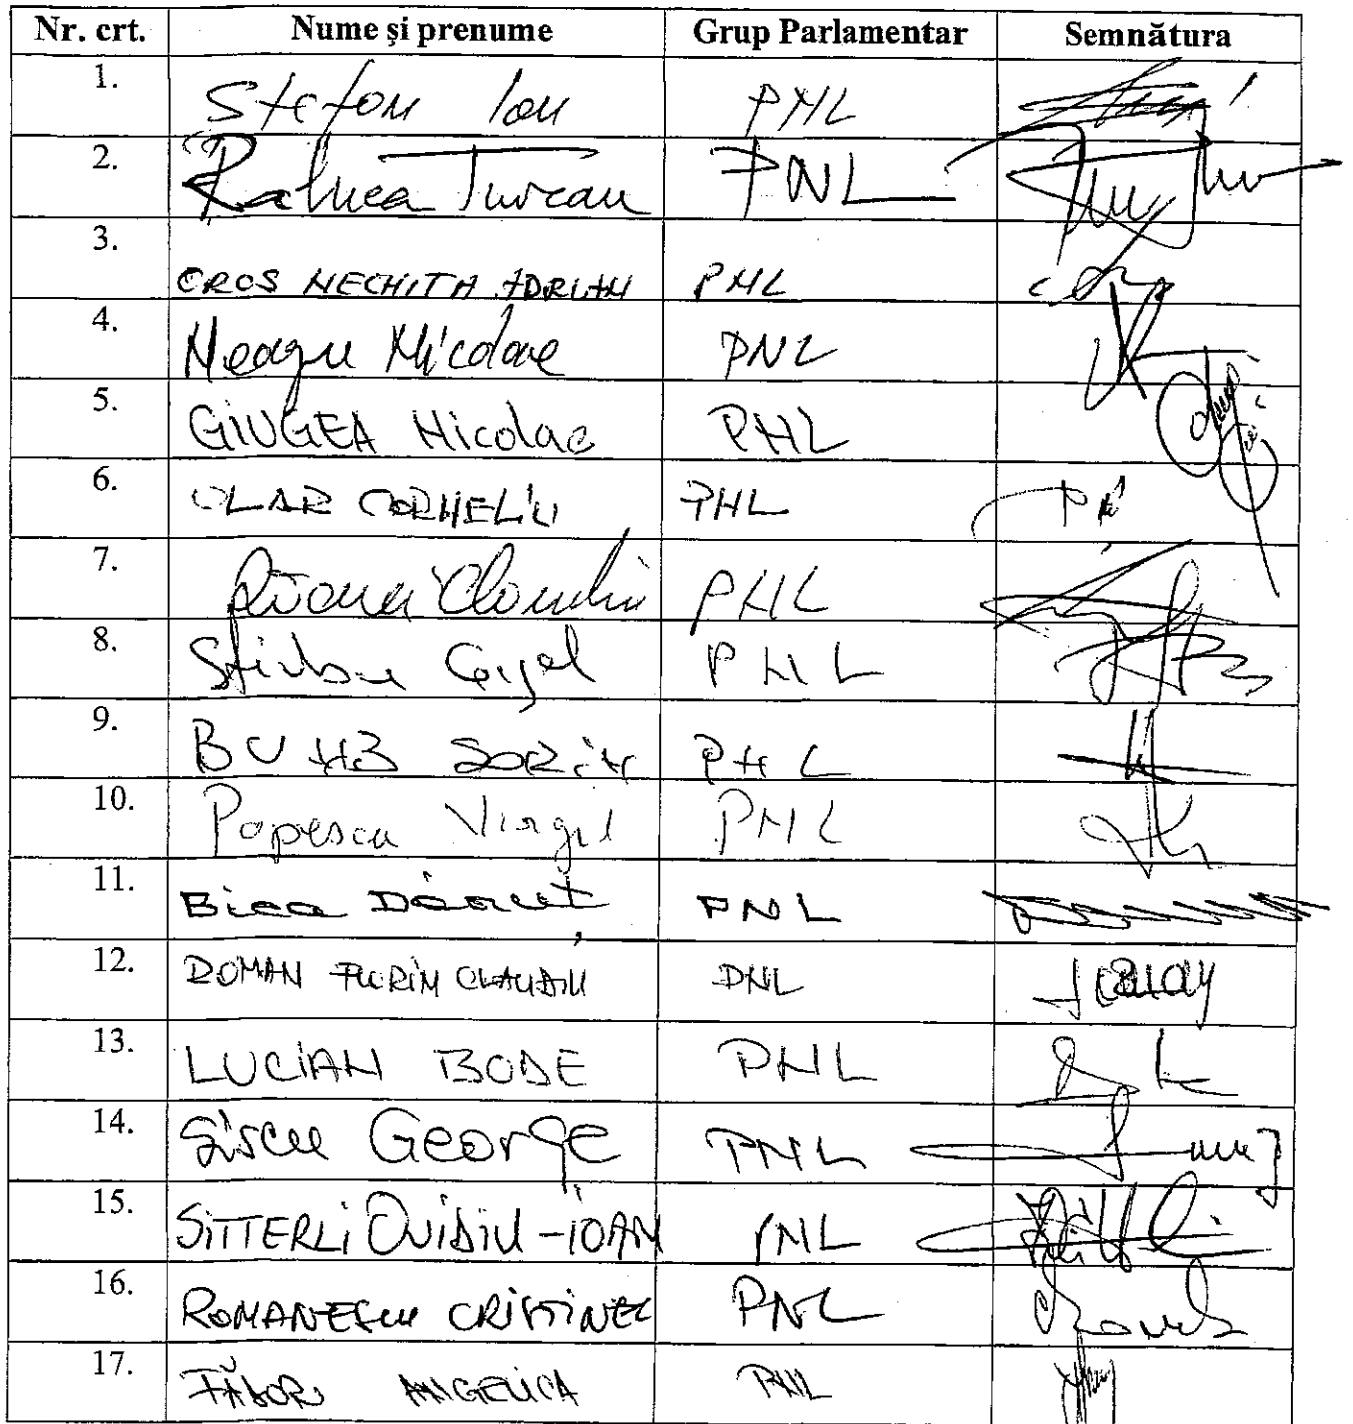 Nr. crt. Nume și prenume Grup Parlamentar Semnătura
1. Ștefan Ion PNL
2. Raluca Turcan PNL
3. OROS NECHITA ADRIAN PNL
4. Neagu Nicolae PNL
5. GIUGEA Nicolae PNL
6. OLAR CORNELIU PNL
7. PNL
8. Știrbu Gigel PNL
9. BUMB SORIN PNL
10. Popescu Virgil PNL
11. Bica Dănuț PNL
12. ROMAN FLORIN CLAUDIU PNL
13. LUCIAN BODE PNL
14. Șișcu George PNL
15. SITTERLI OVIDIU-IOAN PNL
16. ROMANESCU CRISTINEL PNL
17. FĂDOR ANGELICA PNL